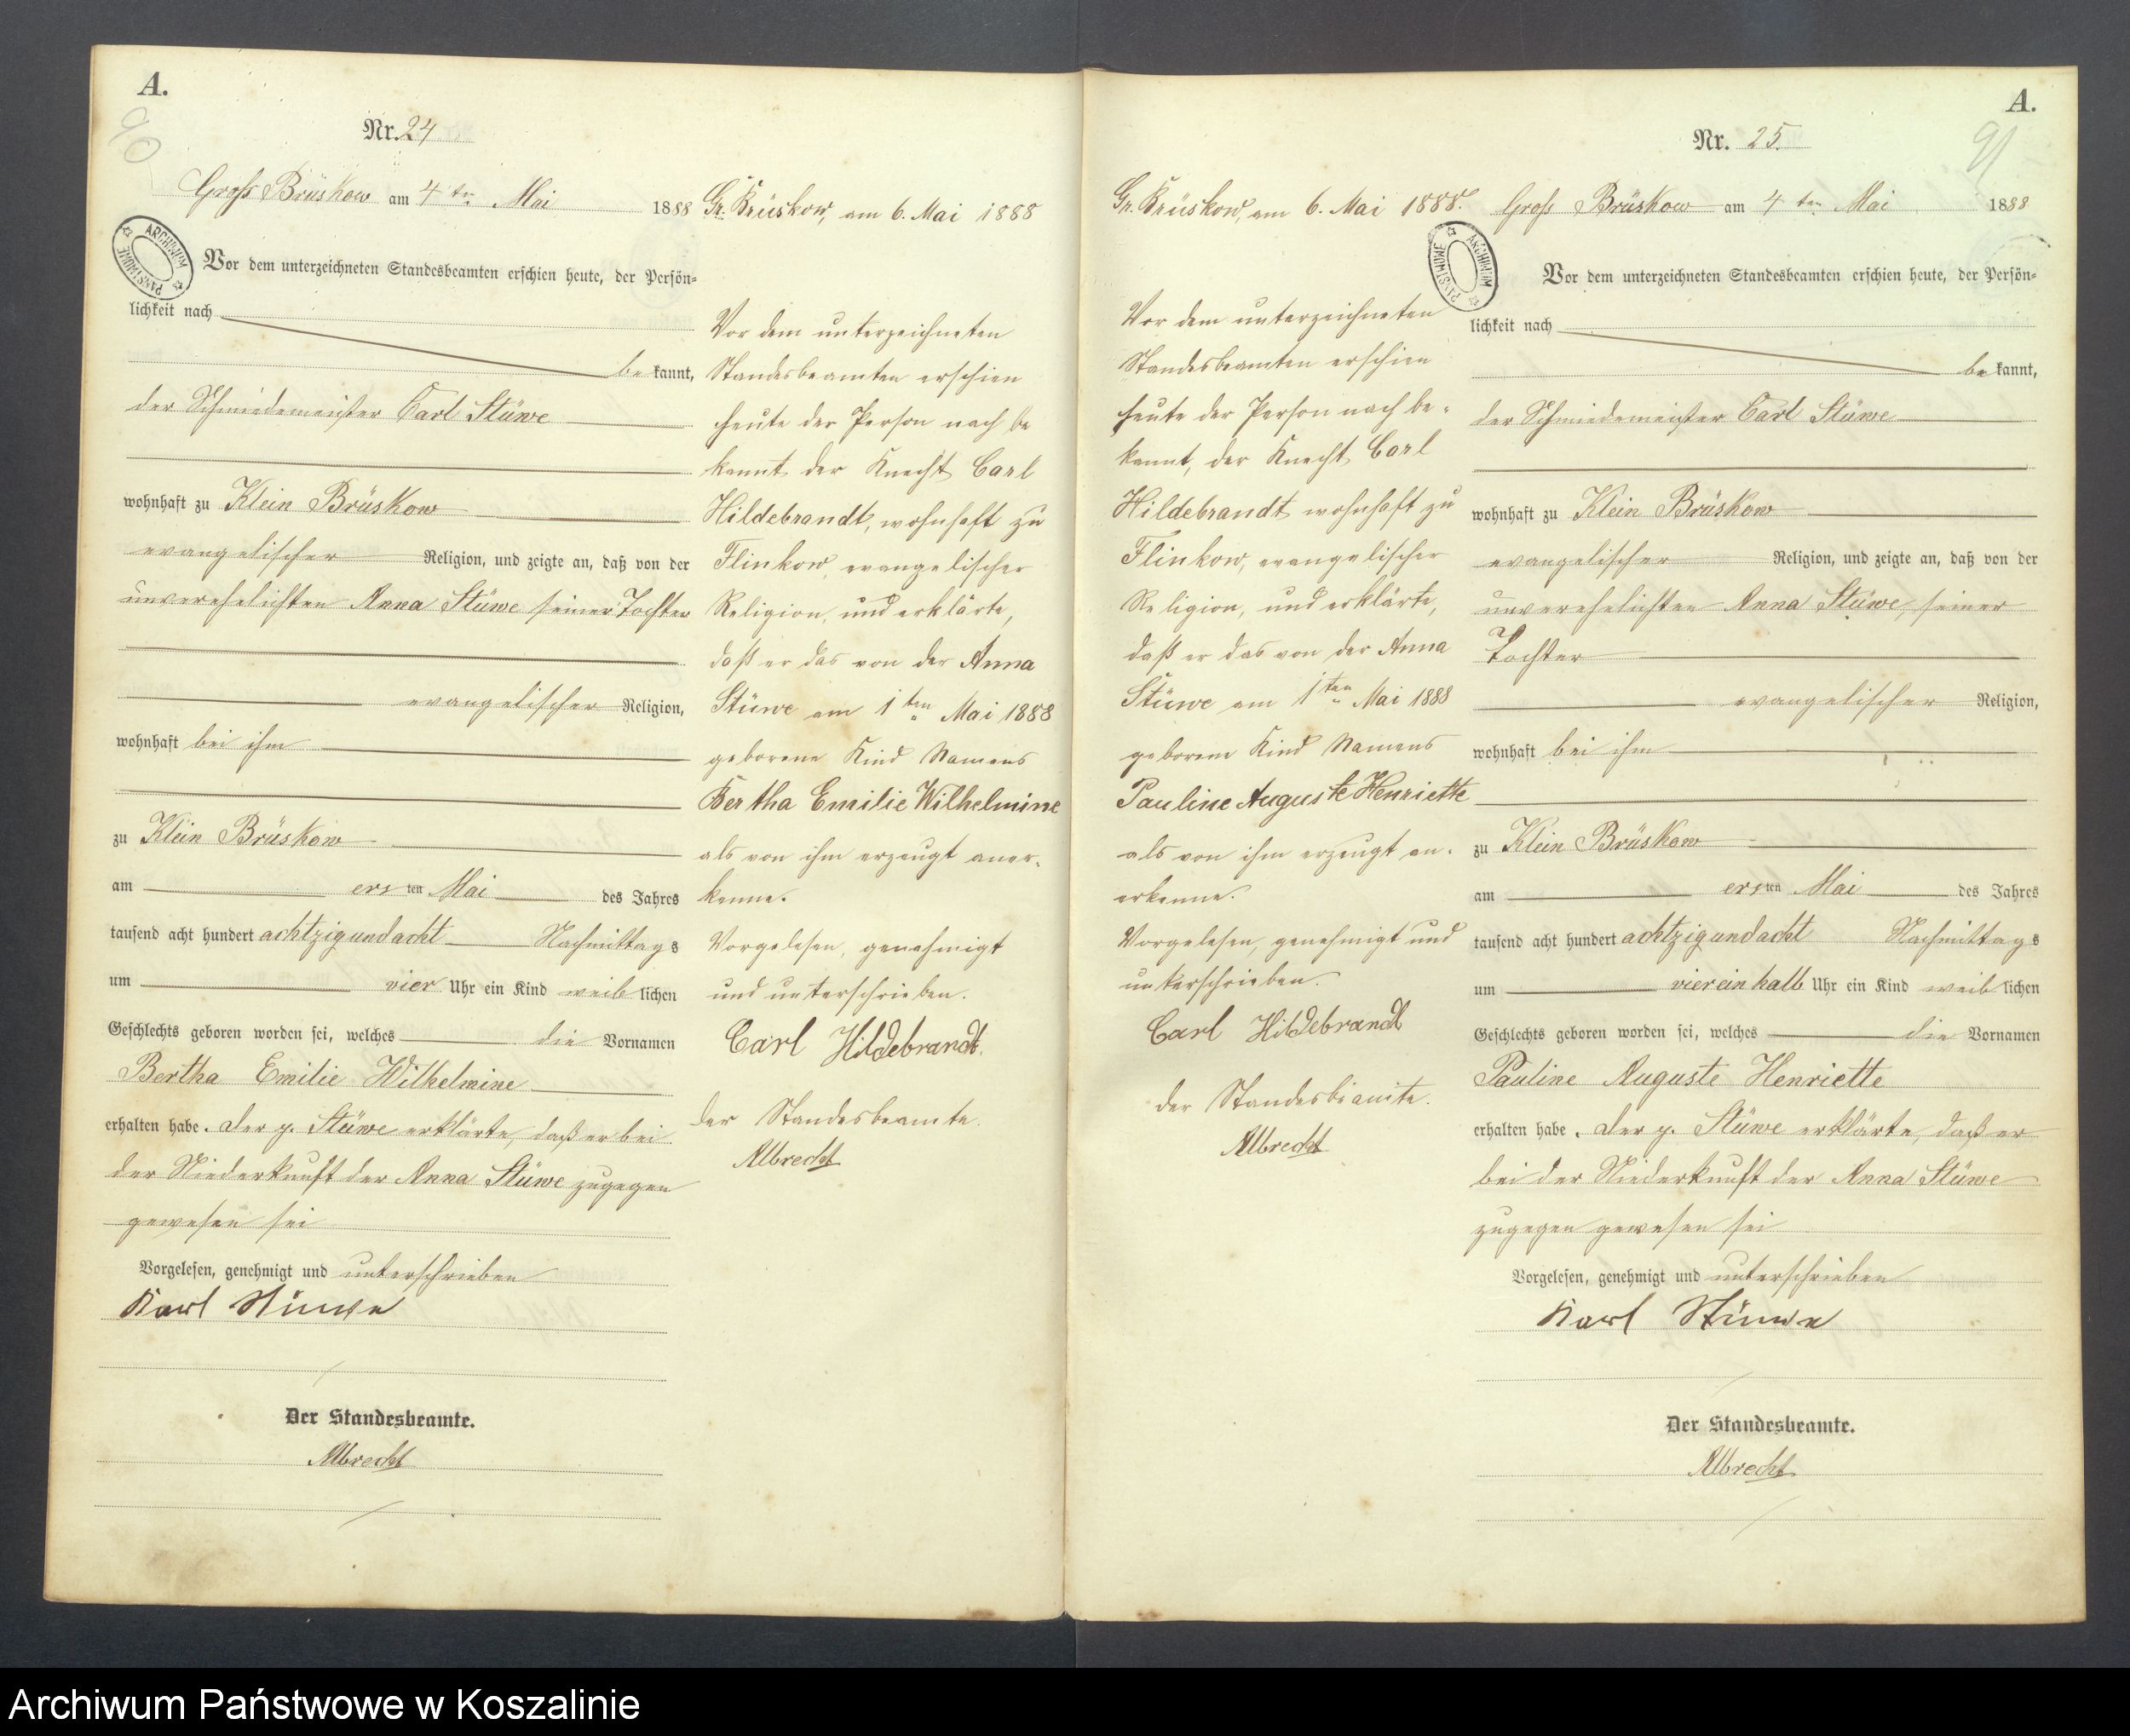 A.
90
Nr. 24
Groß Brüskow am 4 ten Mai 1888
ARCHIWUM PAŃSTWOWE
Vor dem unterzeichneten Standesbeamten erschien heute, der Persön=
lichkeit nach
be kannt,
der Schmiedemeister Carl Stüwe
wohnhaft zu Klein Brüskow
evangelischer Religion, und zeigte an, daß von der
unverehelichten Anna Stüwe seiner Tochter
evangelischer Religion,
wohnhaft bei ihm
zu Klein Brüskow
am ers ten Mai des Jahres
tausend acht hundert achtzigundacht Nachmittags
um vier Uhr ein Kind weib lichen
Geschlechts geboren worden sei, welches die Vornamen
Bertha Emilie Wilhelmine
erhalten habe. Der p. Stüwe erklärte, daß er bei
der Niederkunft der Anna Stüwe zugegen
gewesen sei
Vorgelesen, genehmigt und unterschrieben
Karl Stüwe
Der Standesbeamte.
Albrecht
Gr. Brüskow, am 6. Mai 1888
Vor dem unterzeichneten
Standesbeamten erschien
heute der Person nach be
kannt der Knecht Carl
Hildebrandt, wohnhaft zu
Flinkow, evangelischer
Religion, und erklärte,
daß er das von der Anna
Stüwe am 1 ten Mai 1888
geborene Kind Namens
Bertha Emilie Wilhelmine
als von ihm erzeugt aner-
kenne.
Vorgelesen, genehmigt
und unterschrieben.
Carl Hildebrandt.
Der Standesbeamte.
Albrecht
Gr. Brüskow, am 6. Mai 1888.
Vor dem unterzeichneten
Standesbeamten erschien
heute der Person nach be-
kannt, der Knecht Carl
Hildebrandt wohnhaft zu
Flinkow, evangelischer
Religion, und erklärte,
daß er das von der Anna
Stüwe am 1 ten Mai 1888
geborene Kind Namens
Pauline Auguste Henriette
als von ihm erzeugt an-
erkenne.
Vorgelesen, genehmigt und
unterschrieben.
Carl Hildebrandt
der Standesbeamte.
Albrecht
A.
91
Nr. 25.
Groß Brüskow am 4 ten Mai 1888
ARCHIWUM PAŃSTWOWE
Vor dem unterzeichneten Standesbeamten erschien heute, der Persön=
lichkeit nach
be kannt,
der Schmiedemeister Carl Stüwe
wohnhaft zu Klein Brüskow
evangelischer Religion, und zeigte an, daß von der
unverehelichten Anna Stüwe, seiner
Tochter
evangelischer Religion,
wohnhaft bei ihm
zu Klein Brüskow
am ers ten Mai des Jahres
tausend acht hundert achtzigundacht Nachmittags
um viereinhalb Uhr ein Kind weib lichen
Geschlechts geboren worden sei, welches die Vornamen
Pauline Auguste Henriette
erhalten habe. Der p. Stüwe erklärte, daß er
bei der Niederkunft der Anna Stüwe
zugegen gewesen sei
Vorgelesen, genehmigt und unterschrieben
Karl Stüwe
Der Standesbeamte.
Albrecht
Archiwum Państwowe w Koszalinie